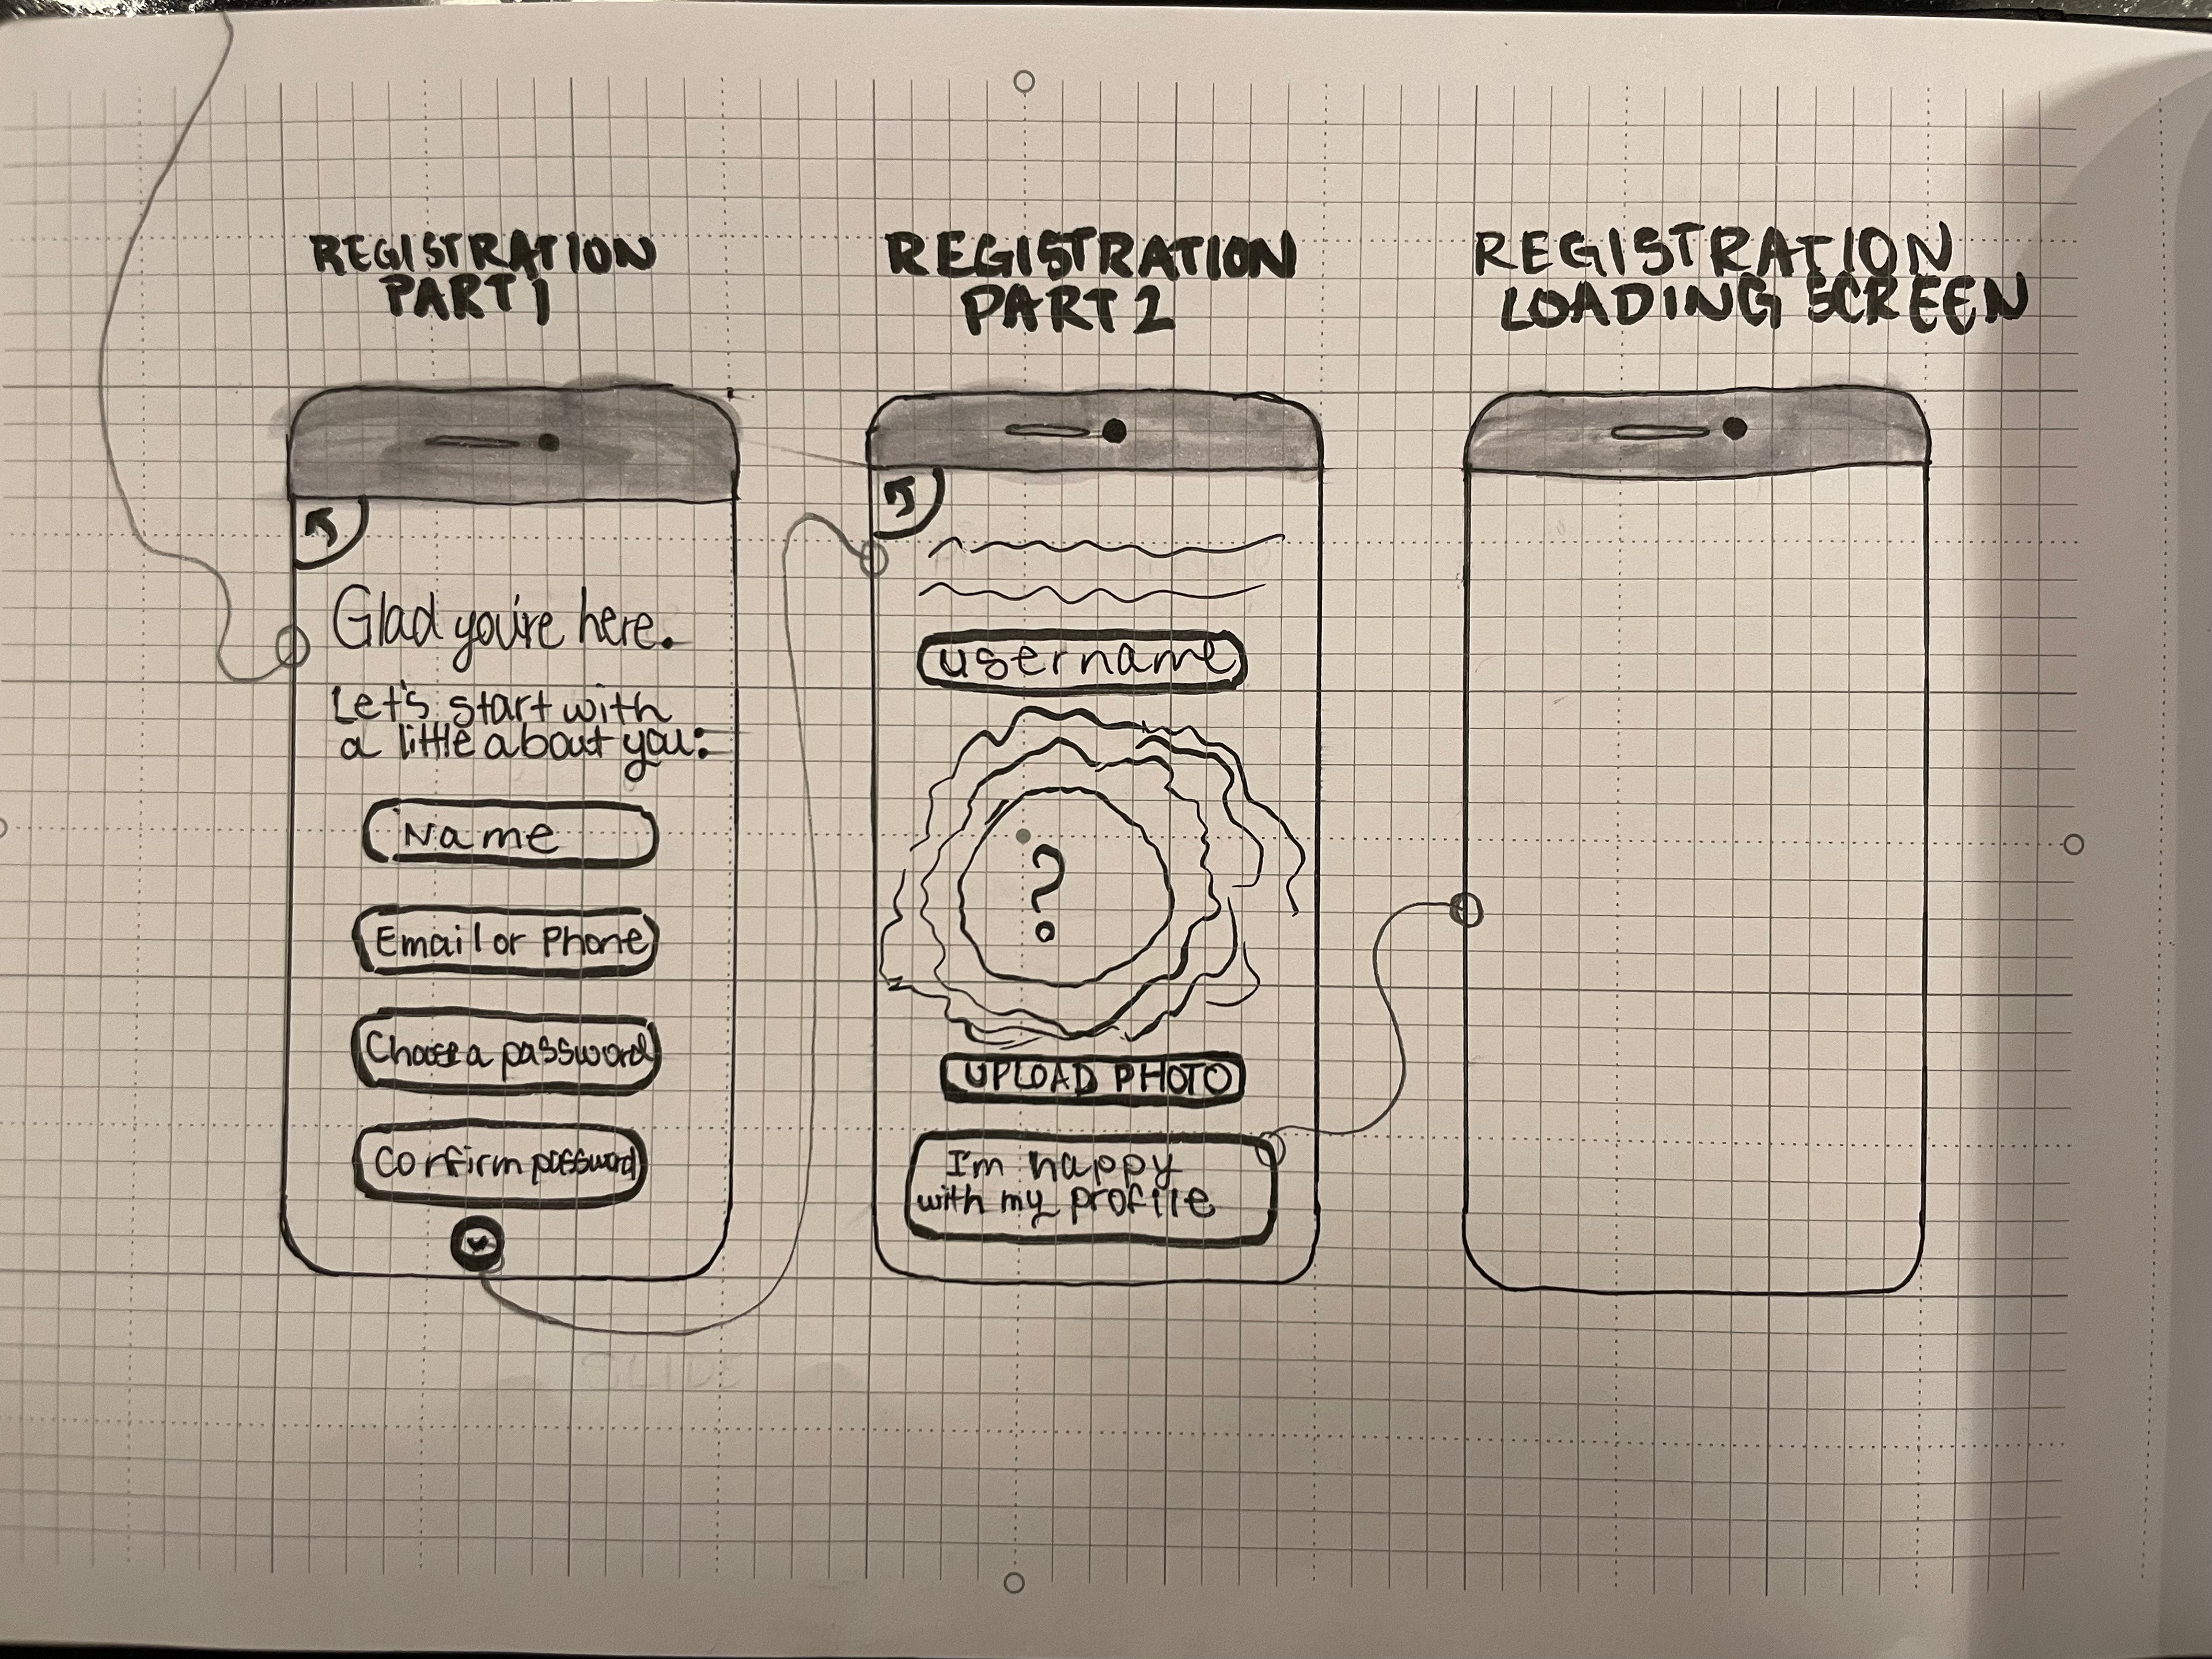 REGISTRATION
PART 1
Glad you're here.
Let's start with
a little about you:
Name
Email or Phone
Choose a password
Confirm password
REGISTRATION
PART 2
username
?
UPLOAD PHOTO
I'm happy
with my profile
REGISTRATION
LOADING SCREEN